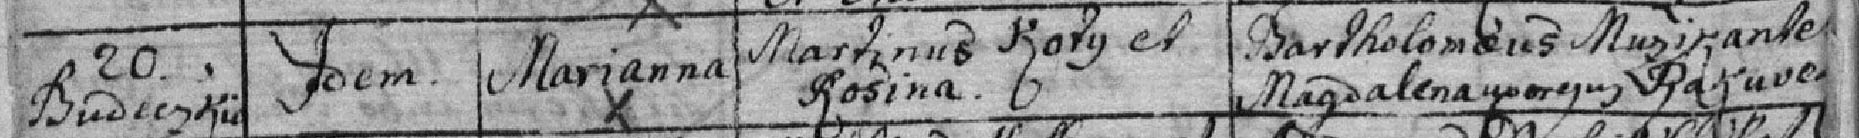 20.
Budeczkii
Idem.
Marianna
Martinus Koty et
Rosina.
Bartholomeus Muzikante
Magdalena